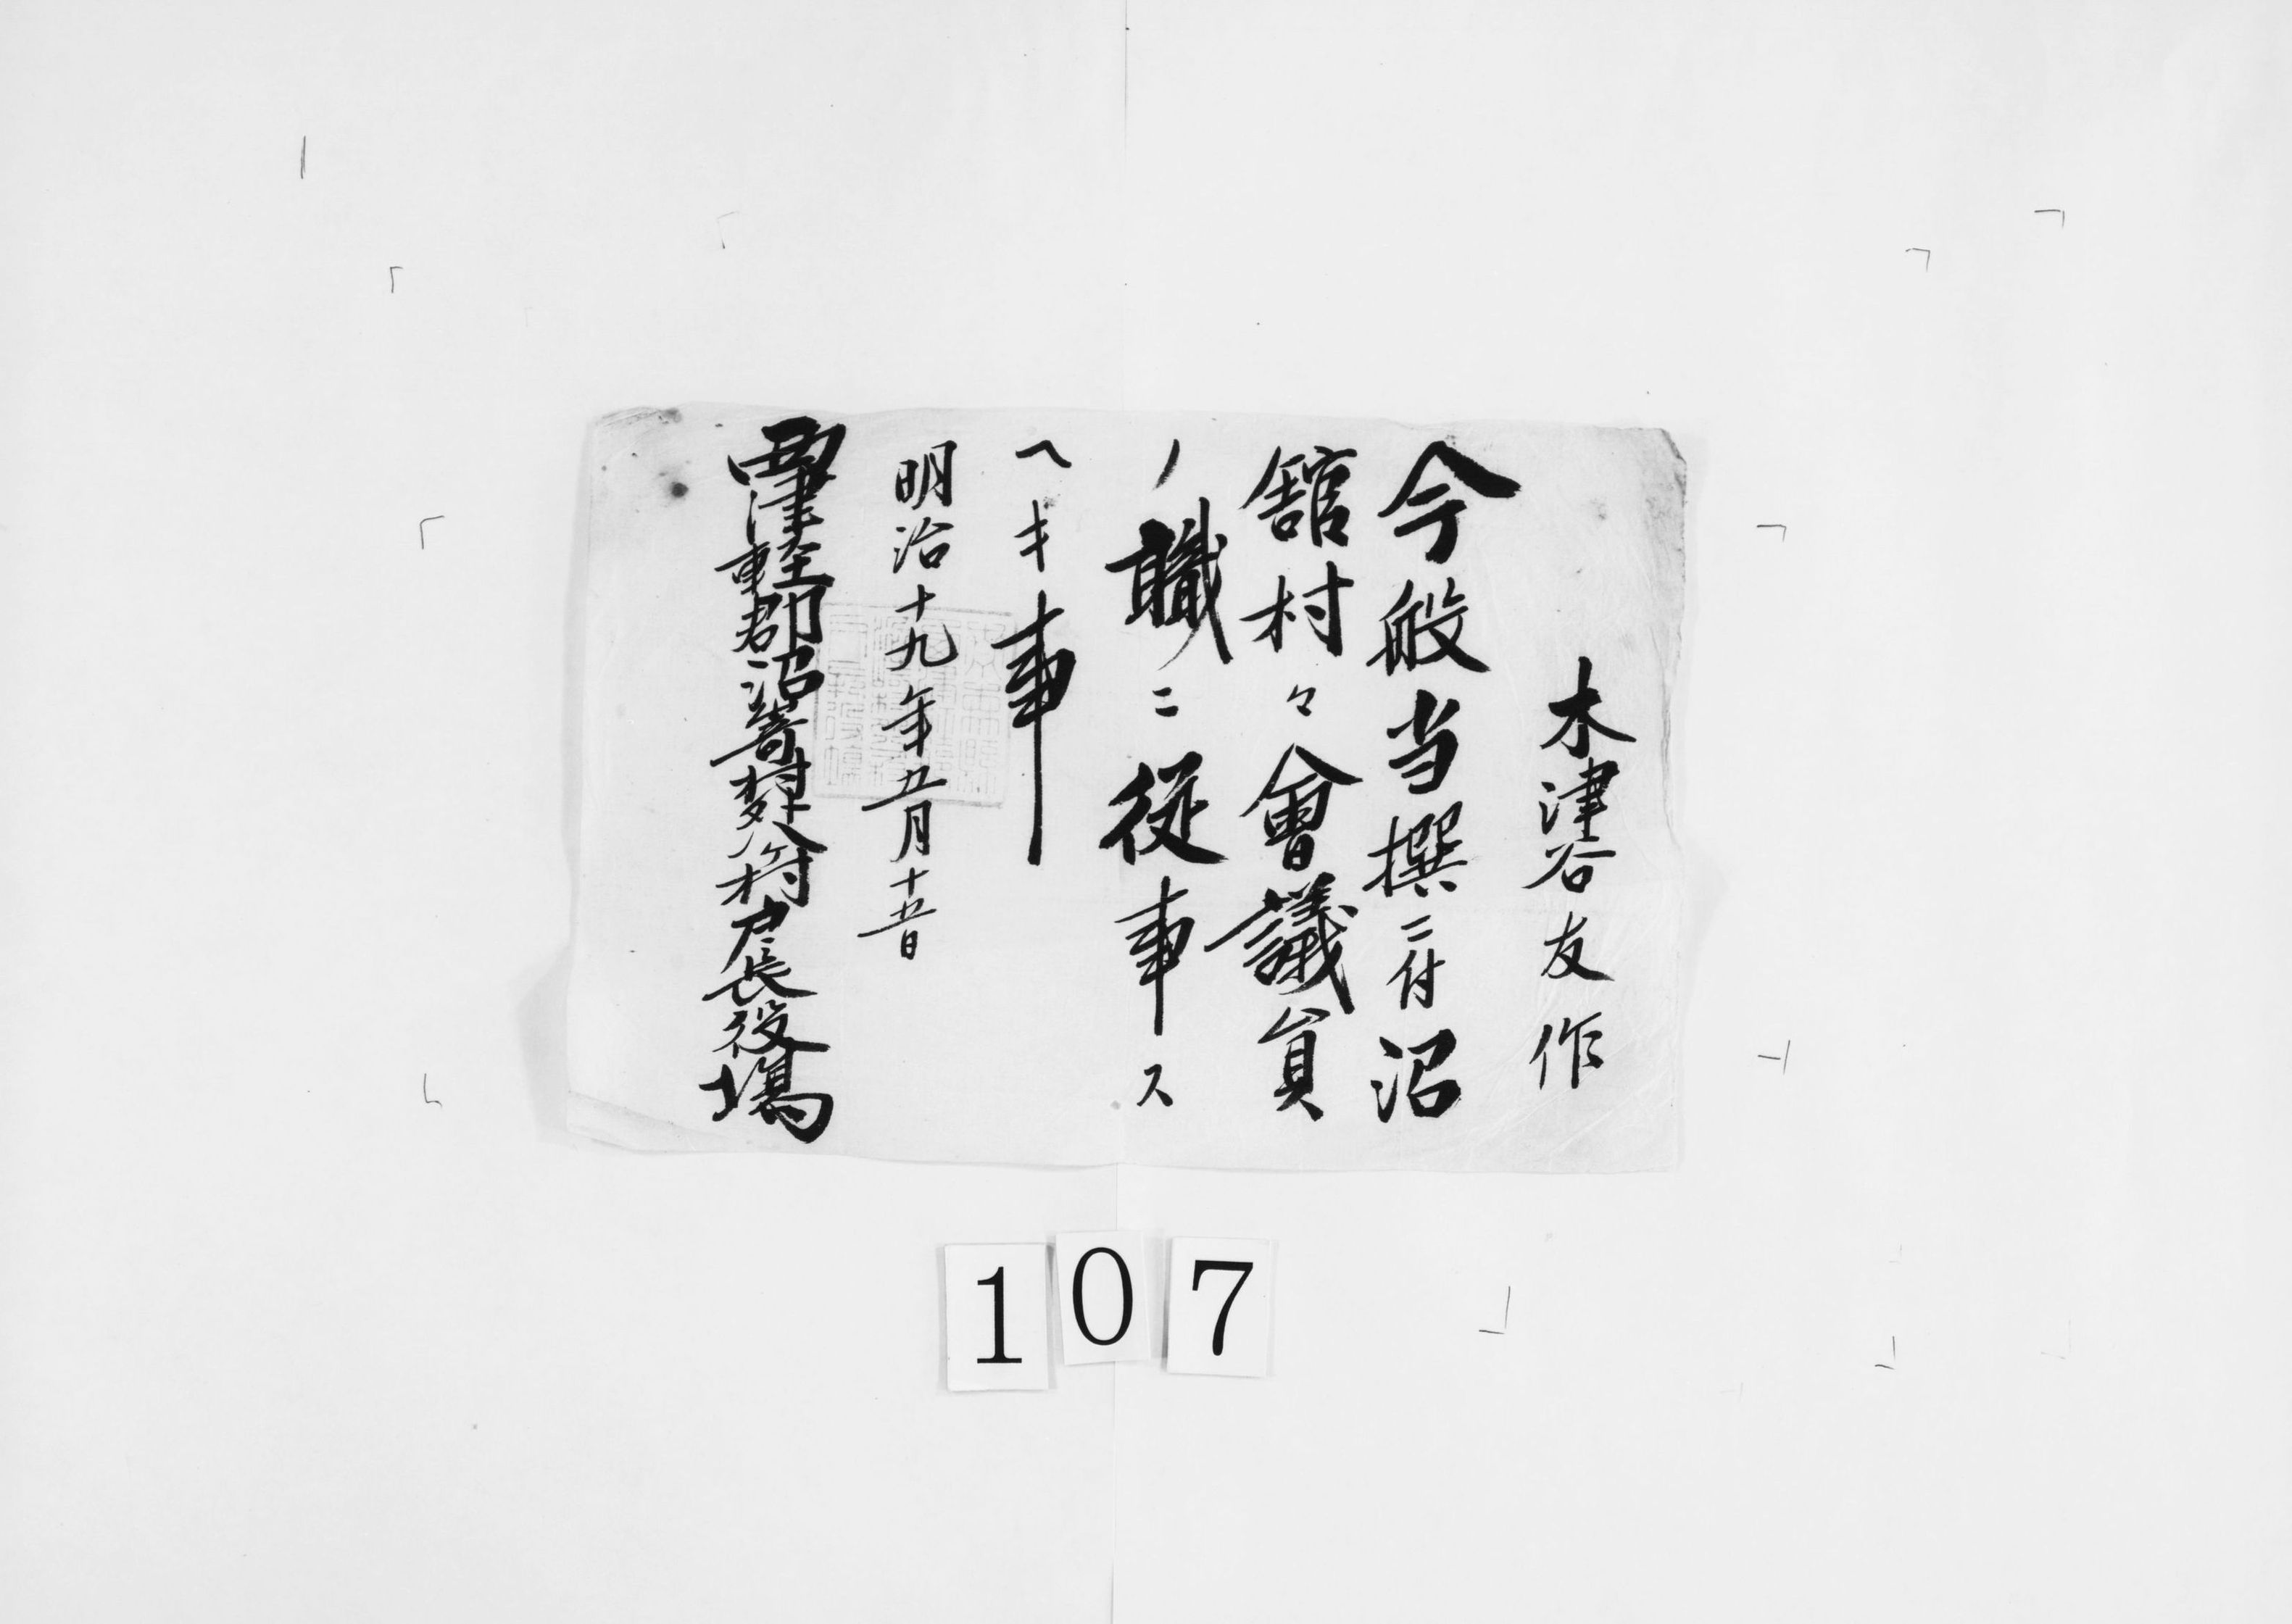 木津谷友作
今般当撰ニ付沼
舘村々會議員
ノ職ニ従事ス
ヘキ事
明治十九年五月十五日
西津軽郡沼舘村外八ヶ村戸長役場
107